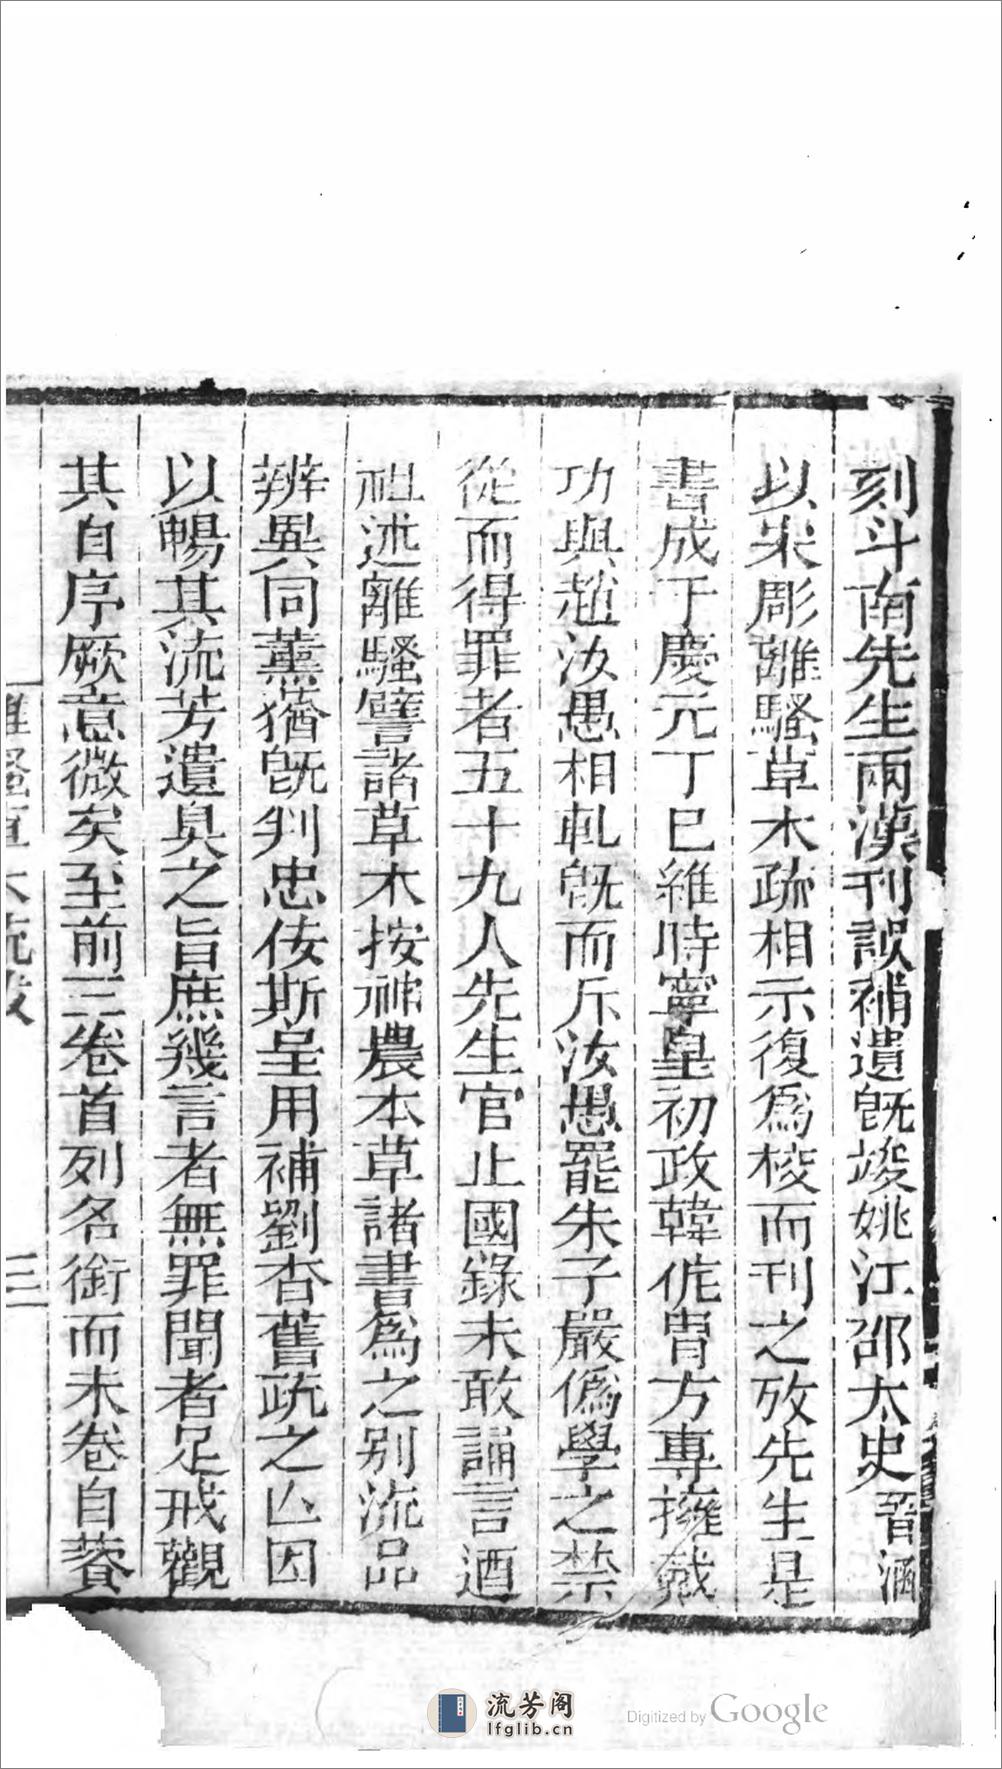 刻斗南先生兩漢刊誤補遺旣竣姚江邵太史晉涵
以宋彫離騷草木疏相示復爲梭而刊之攷先生是
書成于慶元丁巳維時寧皇初政韓侂胄方專擁戴
功與趙汝愚相軋旣而斥汝愚罷朱子嚴僞學之禁
從而得罪者五十九人先生官止國錄未敢誦言迺
祖述離騷譬諸草木按神農本草諸書爲之别流品
辨異同薰蕕旣判忠佞斯呈用補劉杳舊疏之亾因
以暢其流芳遺臭之旨庶幾言者無罪聞者足戒觀
其自序厥意微矣至前三卷首列名銜而末卷自薋
離騷草木疏跋
三
流芳阁
lfglib.cn
Digitized by Google